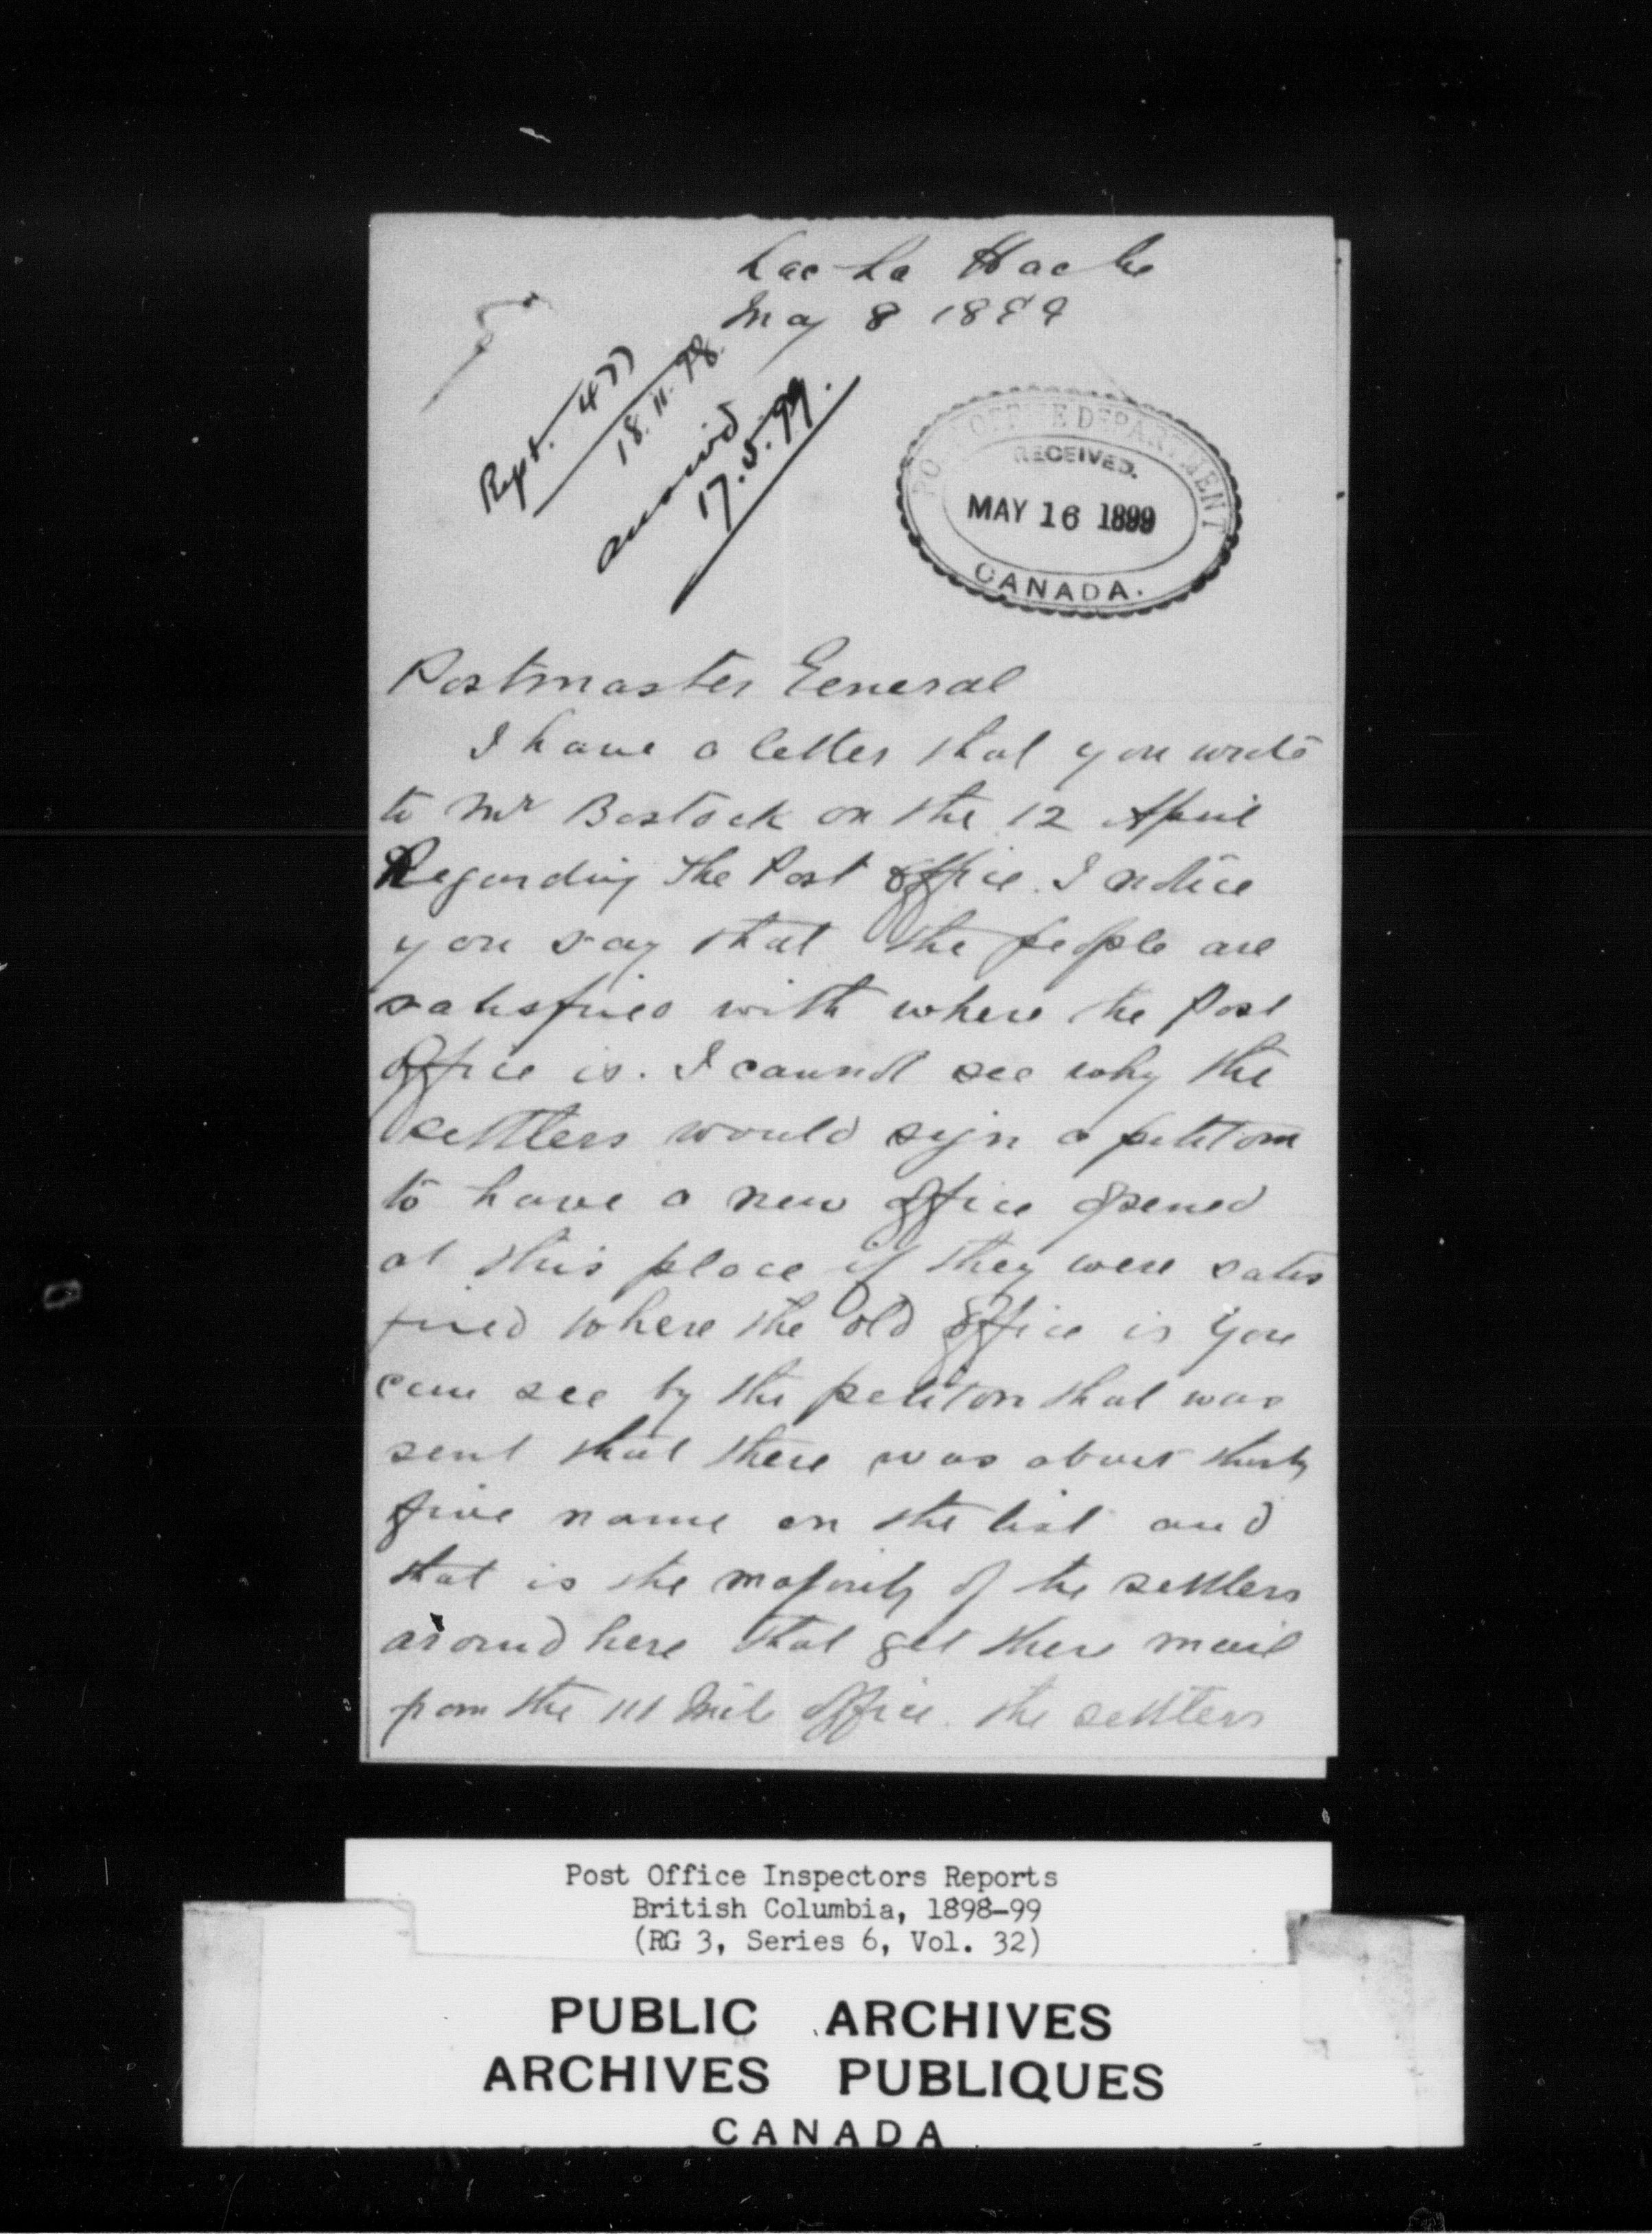 Lac La Hache
May 8 1899
Rept. 477
18.11.98.
answd
17.5.99.
POST OFFICE DEPARTMENT
RECEIVED.
MAY 16 1899
CANADA.
Postmaster General
I have a letter that you wrote
to Mr Bostock on the 12 April
Regarding the Post office. I notice
you say that the people are
satisfied with where the Post
office is. I cannot see why the
settlers would sign a petition
to have a new office opened
at this place if they were satis
fied where the old office is you
can see by the petition that was
sent that there was about thirty
five name on the list and
that is the majority of the settlers
around here that get there mail
from the 111 Mile office. the settlers
Post Office Inspectors Reports
British Columbia, 1898-99
(RG 3, Series 6, Vol. 32)
PUBLIC ARCHIVES
ARCHIVES PUBLIQUES
CANADA